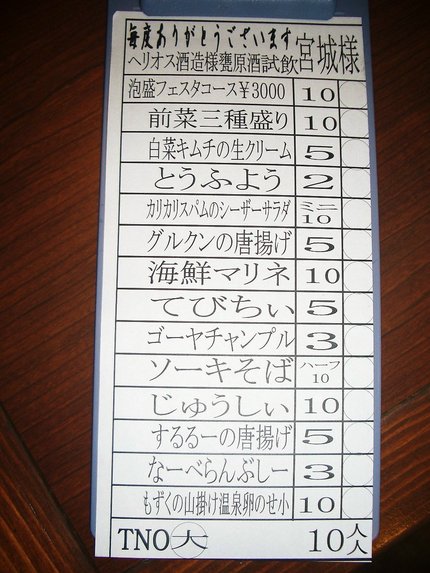 毎度ありがとうございます
ヘリオス酒造様甕原酒試飲 宮城様
泡盛フェスタコース¥3000 10
前菜三種盛り 10
白菜キムチの生クリーム 5
とうふよう 2
カリカリスパムのシーザーサラダ ミニ 10
グルクンの唐揚げ 5
海鮮マリネ 10
てびちぃ 5
ゴーヤチャンプル 3
ソーキそば ハーフ 10
じゅうしぃ 10
するるーの唐揚げ 5
なーべらんぶしー 3
もずくの山掛け温泉卵のせ小 10
TNO 大 10人